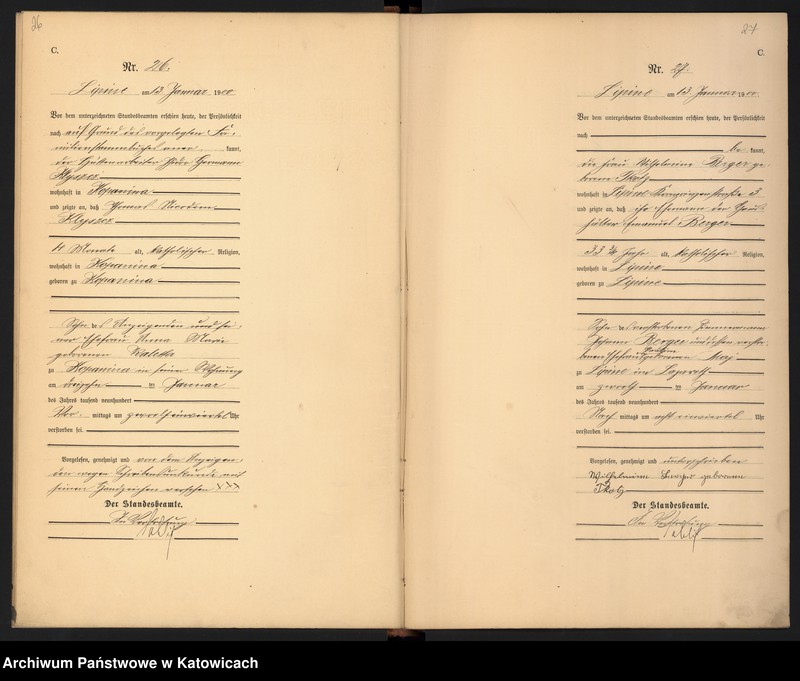 26
C.
Nr. 26.
Lipine am 13 Januar 1900
Vor dem unterzeichneten Standesbeamten erschien heute, der Persönlichkeit
nach auf Grund des vorgelegten Fa-
milienstammbuches aner kannt,
der Hüttenarbeiter
wohnhaft in Kopanina
und zeigte an, daß Thomas
4 Monate alt, katholischer Religion,
wohnhaft in Kopanina
geboren zu Kopanina
Sohn des Anzeigenden und sei-
ner Ehefrau Anna Marie
geborenen
zu Kopanina in seiner Wohnung
am dreizehn ten Januar
des Jahres tausend neunhundert
Vor mittags um zwölfeinviertel Uhr
verstorben sei.
Vorgelesen, genehmigt und von dem Anzeigen-
den wegen Schreibensunkunde mit
seinem Handzeichen versehen XXX
Der Standesbeamte.
In Vertretung
27
C.
Nr. 27.
Lipine am 13 Januar 1900
Vor dem unterzeichneten Standesbeamten erschien heute, der Persönlichkeit
nach
be kannt,
die Frau Wilhelmine Berger ge-
borene
wohnhaft in Lipine 3
und zeigte an, daß ihr Ehemann der
Emanuel Berger
33 ¾ Jahre alt, katholischer Religion,
wohnhaft in Lipine
geboren zu Lipine
Sohn des verstorbenen Zimmermann
Johann Berger und dessen verstor-
benen Ehefrau geborenen
zu Lipine im Lazareth
am zwölf ten Januar
des Jahres tausend neunhundert
Nach mittags um acht einviertel Uhr
verstorben sei.
Vorgelesen, genehmigt und unterschrieben
Wilhelmine Berger geborenen
Der Standesbeamte.
In Vertretung
Archiwum Państwowe w Katowicach